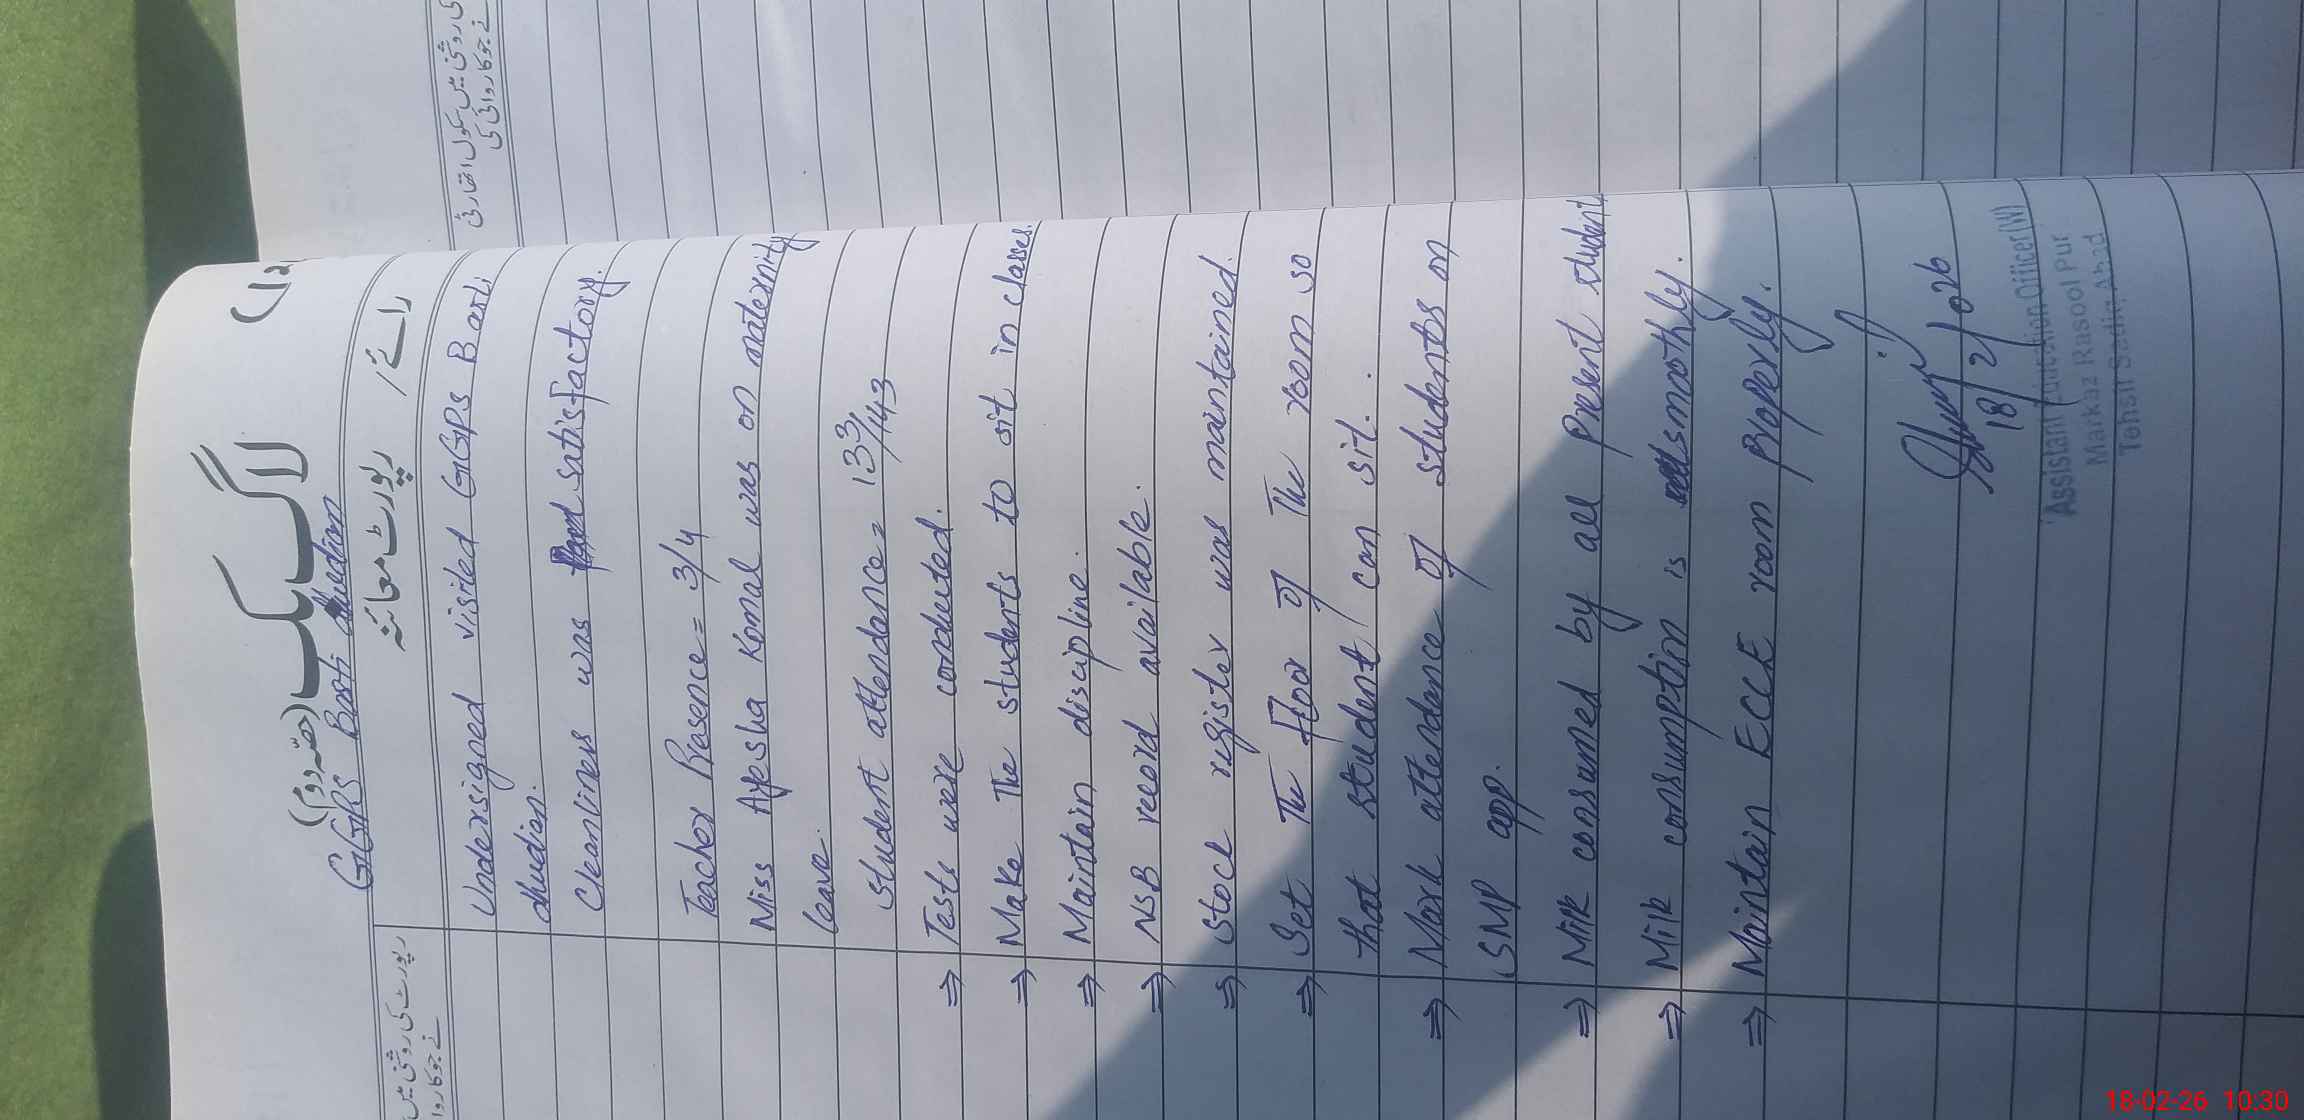 لاگ بک (حصّہ دوم)
GGPS Basti dhudian
رپورٹ معائنہ / رائے
رپورٹ کی روشنی میں
نے جو کاروا
کی روشنی میں سکول اتھارٹی
نے جو کاروائی کی
Undersigned visited GGPS Basti
dhudian.
Cleanliness was satisfactory.
Teacher Presence = 3/4
Miss Ayesha Komal was on maternity
leave.
Student attendance = 133/143
⇒ Tests were conducted.
⇒ Make The students to sit in classes.
⇒ Maintain discipline.
⇒ NSB record available.
⇒ Stock register was maintained.
⇒ Set The floor of The room so
that student can sit.
⇒ Mark attendance of students on
SMP app.
⇒ Milk consamed by all present student
⇒ Milk consumption is smothly.
⇒ Maintain ECCE room properly.
18/2/026
Assistant Education Officer (W)
Markaz Rasool Pur
Tehsil Sadiq Abad
18-02-26 10:30